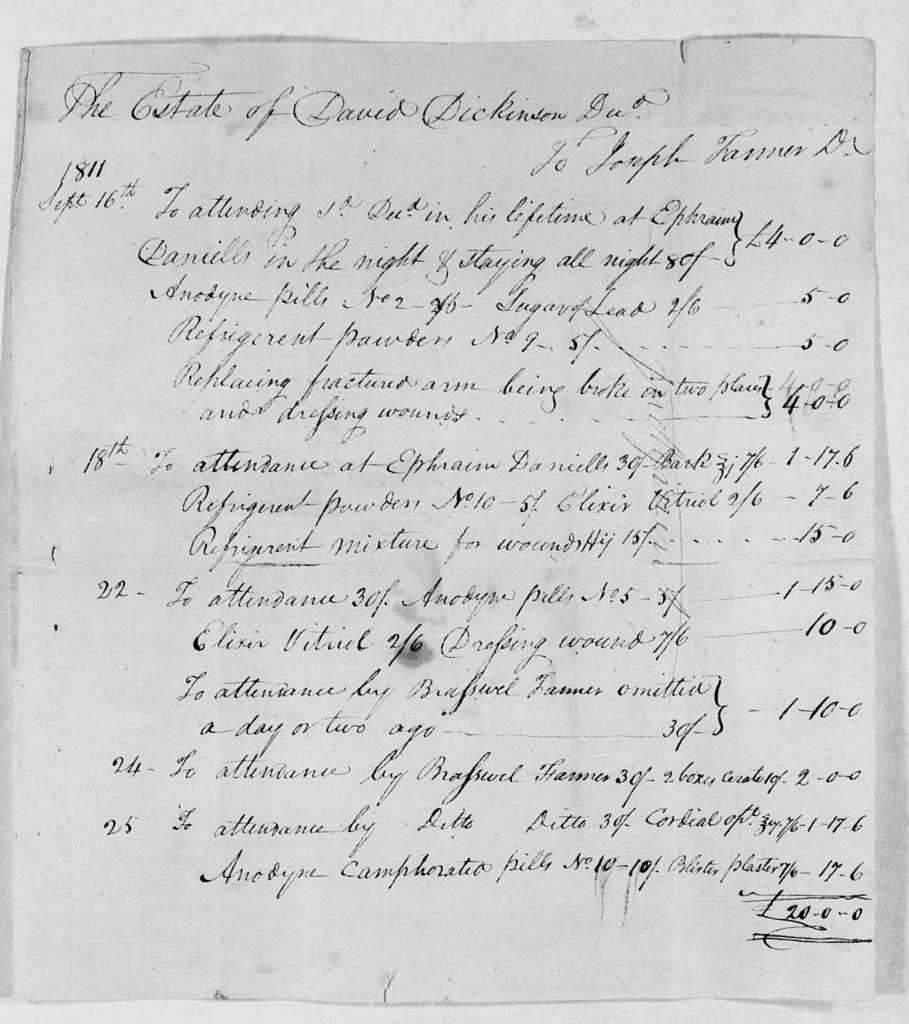 The Estate of David Dickinson Decd.
To Joseph Farmer Dr
1811
Sept. 16th. To attending sd. Decd. in his lifetime at Ephraim
Daniells in the night & staying all night 80/- £4-0-0
Anodyne pills No 2 - 2/6 - Sugar of Lead 2/6 5-0
Refrigerent powders No 9 - 5/. 5-0
Replacing fractured arm being broke in two places
and dressing wounds. 4-0-0
18th - To attendance at Ephraim Daniells 30/- Bark ℥j 7/6 - 1-17-6
Refrigerent powders No. 10 - 5/. Elixir Vitriol 2/6 - 7-6
Refrigerent mixture for wounds 15/. 15-0
22 - To attendance 30/. Anodyne pills No 5 - 5/ 1-15-0
Elixir Vitriol 2/6 Dressing wound 7/6 10-0
To attendance by Brasswel Farmer omitted
a day or two ago 30/- - 1-10-0
24 - To attendance by Brasswel Farmer 30/- 2 boxes cerate 10/- 2-0-0
25 To attendance by Ditto Ditto 30/- Cordial 7/6 - 1-17-6
Anodyne Camphorated pills No. 10 - 10/. Blister plaster 7/6 - 17-6
£20-0-0